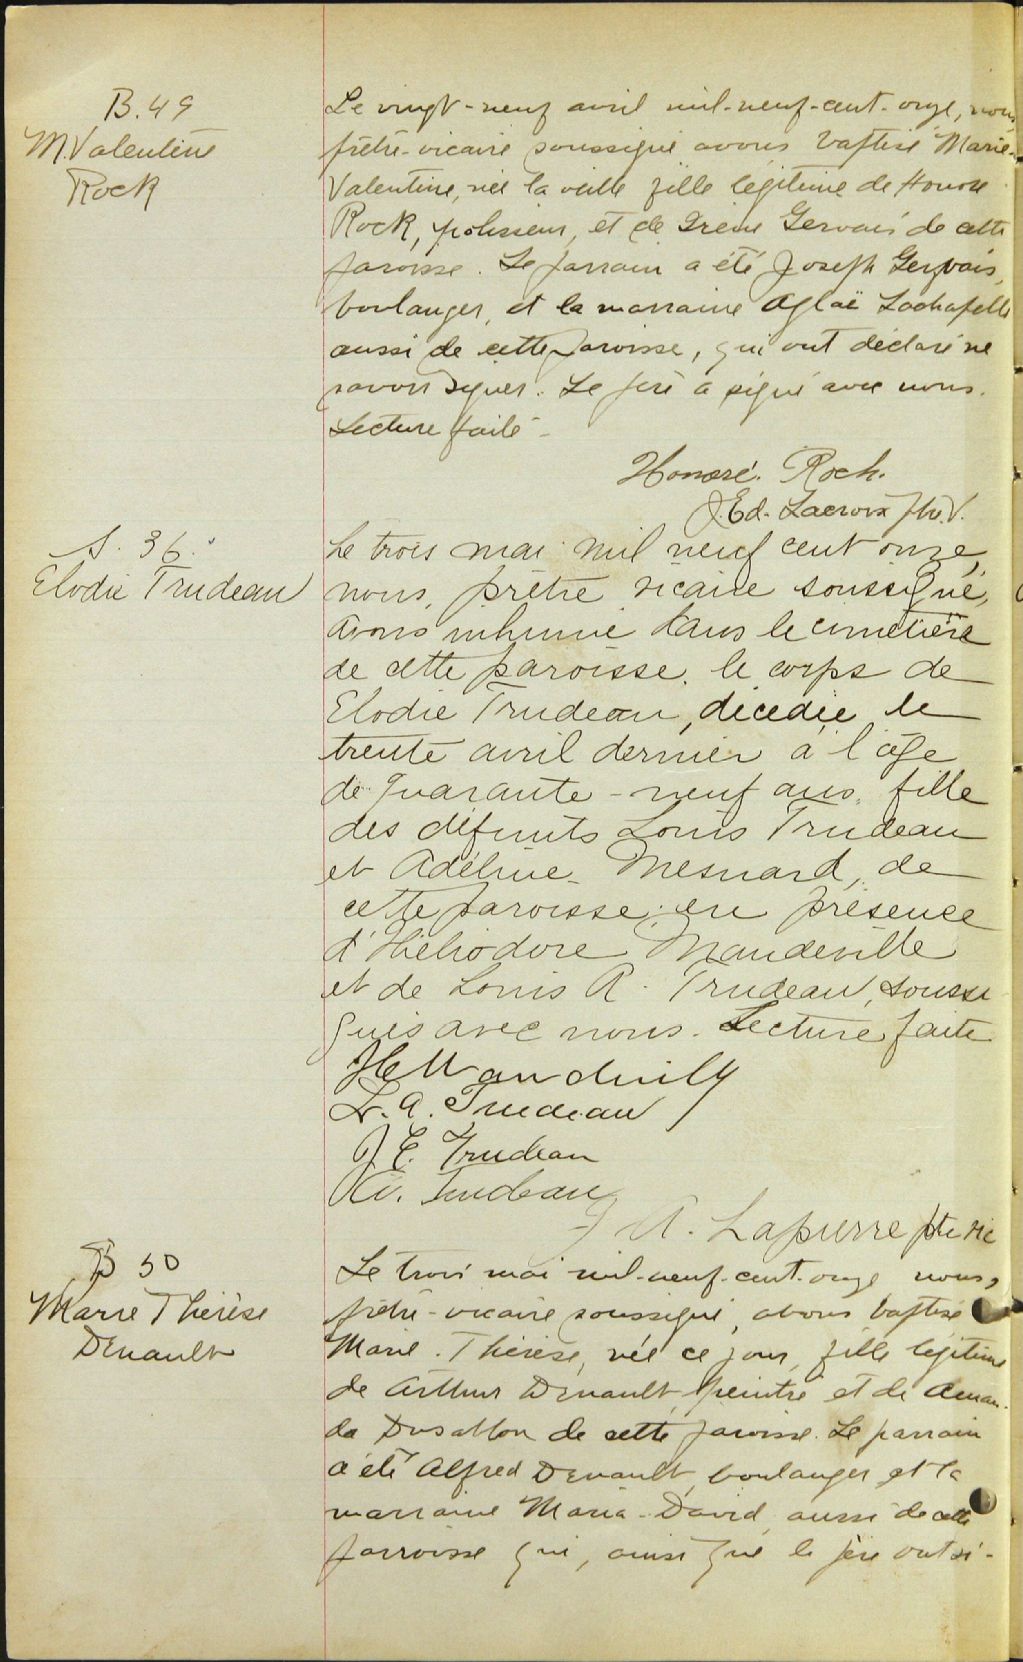 B. 49
M. Valentine
Rock
Le vingt-neuf avril mil-neuf-cent-onze, nous,
prêtre-vicaire soussigné avons baptisé Marie-
Valentine, née la veille fille légitime de Honoré
Rock, polisseur, et de Irène Gervais de cette
paroisse. Le parrain a été Joseph Gervais,
boulanger, et la marraine Aglaë Lachapelle
aussi de cette paroisse, qui ont déclaré ne
savoir signer. Le père a signé avec nous.
Lecture faite -
Honoré. Roch.
J. Ed. Lacroix Ptr. V.
S. 36.
Elodie Trudeau
Le trois mai mil neuf cent onze,
nous, prêtre vicaire soussigné,
avons inhumé dans le cimetière
de cette paroisse, le corps de
Elodie Trudeau, décédée le
trente avril dernier à l'âge
de quarante-neuf ans, fille
des défunts Louis Trudeau
et Adéline Mesnard, de
cette paroisse; en présence
d'Héliodore Mandeville
et de Louis A. Trudeau, soussi
gnés avec nous. Lecture faite
L. A. Trudeau
J. E. Trudeau
Trudeau
J A. Lapierre ptr vic
B 50
Marie Thérèse
Denault
Le trois mai mil-neuf-cent-onze nous,
prêtre-vicaire soussigné, avons baptisé
Marie-Thérèse, née ce jour, fille légitime
de Arthur Denault, peintre et de Aman-
da Dusablon de cette paroisse. Le parrain
a été Alfred Denault, boulanger et la
marraine Maria David, aussi de cette
parroisse qui, ainsi que le père ont si-